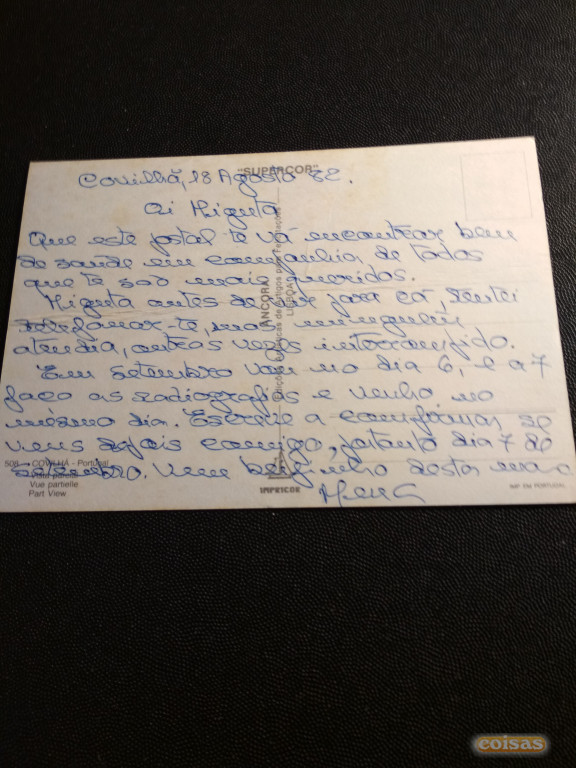 "SUPERCOR"
Covilhã, 18 Agosto 82.
Oi Miguta
Que este postal te vá encontrar bem
de saúde em companhia de todos
que te são mais queridos.
Miguta antes de vir para cá, tentei
telefonar-te, mas ninguém
atendia, outras vezes interrompido.
Em setembro vou no dia 6, e a 7
faço as radiografias e venho no
mesmo dia. Escreve a confirmar se
vens depois comigo, portanto dia 7 de
setembro. Um beijinho desta
508 - COVILHÃ - Portugal
Vista parcial
Vue partielle
Part View
ÂNCORA
LISBOA
IMPRICOR
IMP. EM PORTUGAL
coisas